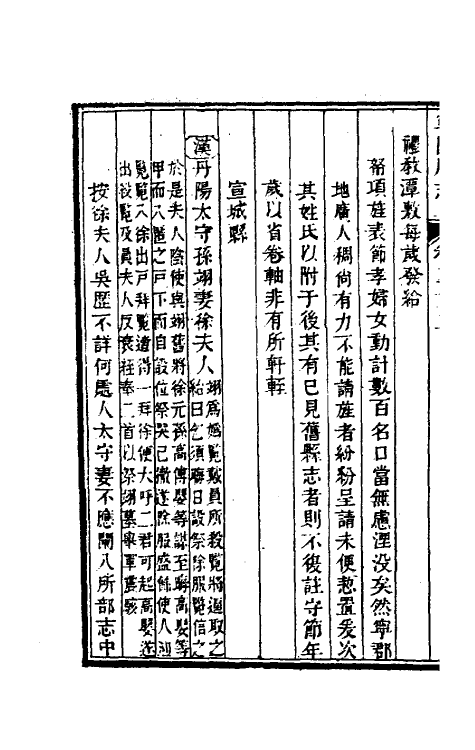 禮敎潭敷每歲發給
帑項旌表節孝婦女動計數百名口當無慮湮没矣然寧郡
地廣人稠尚有力不能請旌者紛紛呈請未便恝置爰次
其姓氏以附于後其有已見舊縣志者則不復註守節年
歲以省卷軸非有所軒輊
宣城縣
漢丹陽太守孫翊妻徐夫人
翊爲嬀覽戴員所殺覽將逼取之
紿曰乞須晦日設祭除服覽信之
於是夫人陰使與翊舊將徐元孫高傅嬰等謀至晦高嬰等
甲而入匿之戶下而自設位祭哭已徹遂除服盛飾使人迎
覽覽入徐出戶拜覽遽得一拜徐便大呼二君可起高嬰遂
出殺覽及員夫人反衰絰奉二首以祭翊墓舉軍震駭
按徐夫人吳歷不詳何處人太守妻不應闌入所部志中